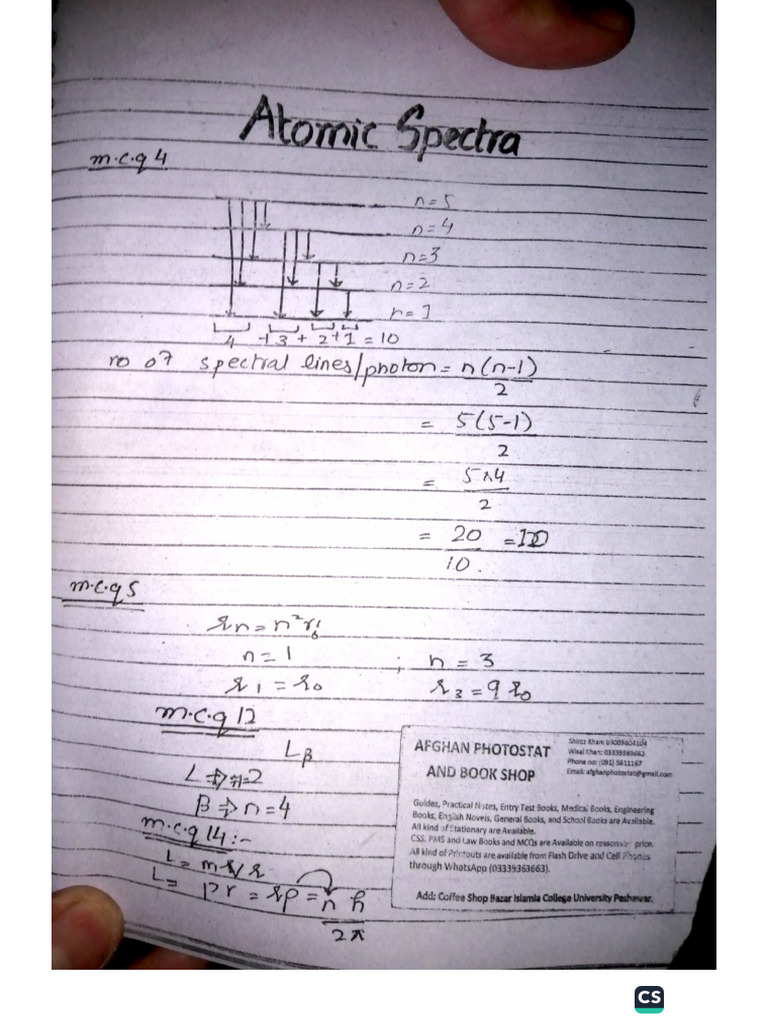 Atomic Spectra
m.c.q 4
n=5
n=4
n=3
n=2
n=1
4 + 3 + 2 + 1 = 10
no of spectral lines/photon = n(n-1)
2
= 5(5-1)
2
= 5×4
2
= 20 = 10
10.
m.c.q 5
rn = n²r₀
n = 1 ; n = 3
r₁ = r₀ r₃ = 9 r₀
m.c.q 12
Lβ
L ⇒ n=2
β ⇒ n=4
m.c.q 14:-
L = mvr
L = pr = rp = n h
2π
AFGHAN PHOTOSTAT
AND BOOK SHOP
Shiraz Khan: 03005604104
Wisal Khan: 03339363663
Phone no: (091) 5611167
Email: afghanphotostat@gmail.com
Guides, Practical Notes, Entry Test Books, Medical Books, Engineering
Books, English Novels, General Books, and School Books are Available.
All kind of Stationary are Available.
CSS, PMS and Law Books and MCQs are Available on reasonable price.
All kind of Printouts are available from Flash Drive and Cell Phones
through WhatsApp (03339363663).
Add: Coffee Shop Bazar Islamia College University Peshawar.
CS